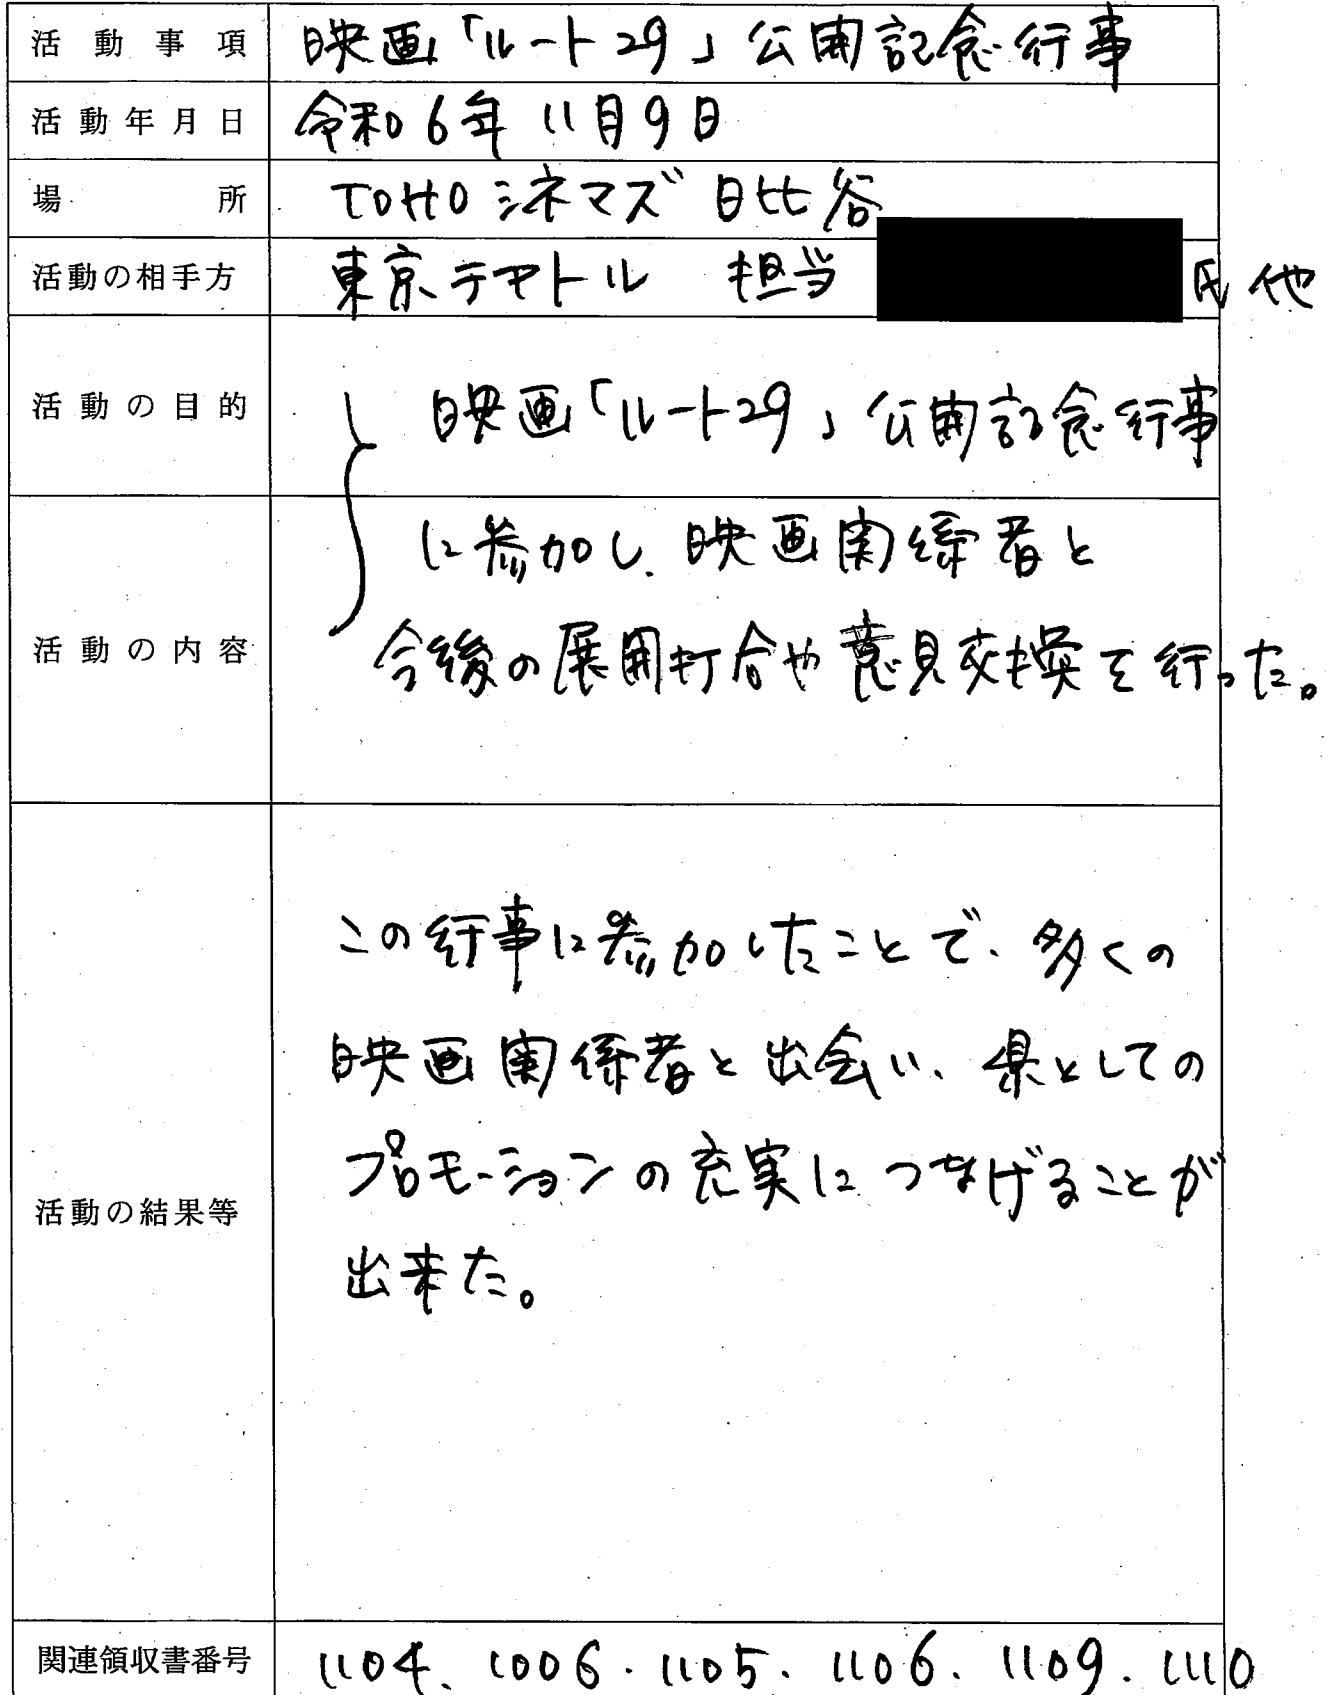 活動事項 映画「ルート29」公開記念行事
活動年月日 令和6年11月9日
場所 TOHOシネマズ 日比谷
活動の相手方 東京テアトル 担当 氏 他
活動の目的 映画「ルート29」公開記念行事
に参加し、映画関係者と
活動の内容 今後の展開打合や意見交換を行った。
この行事に参加したことで、多くの
映画関係者と出会い、県としての
プロモーションの充実につなげることが
活動の結果等
出来た。
関連領収書番号 1104、1006.1105.1106.1109.1110